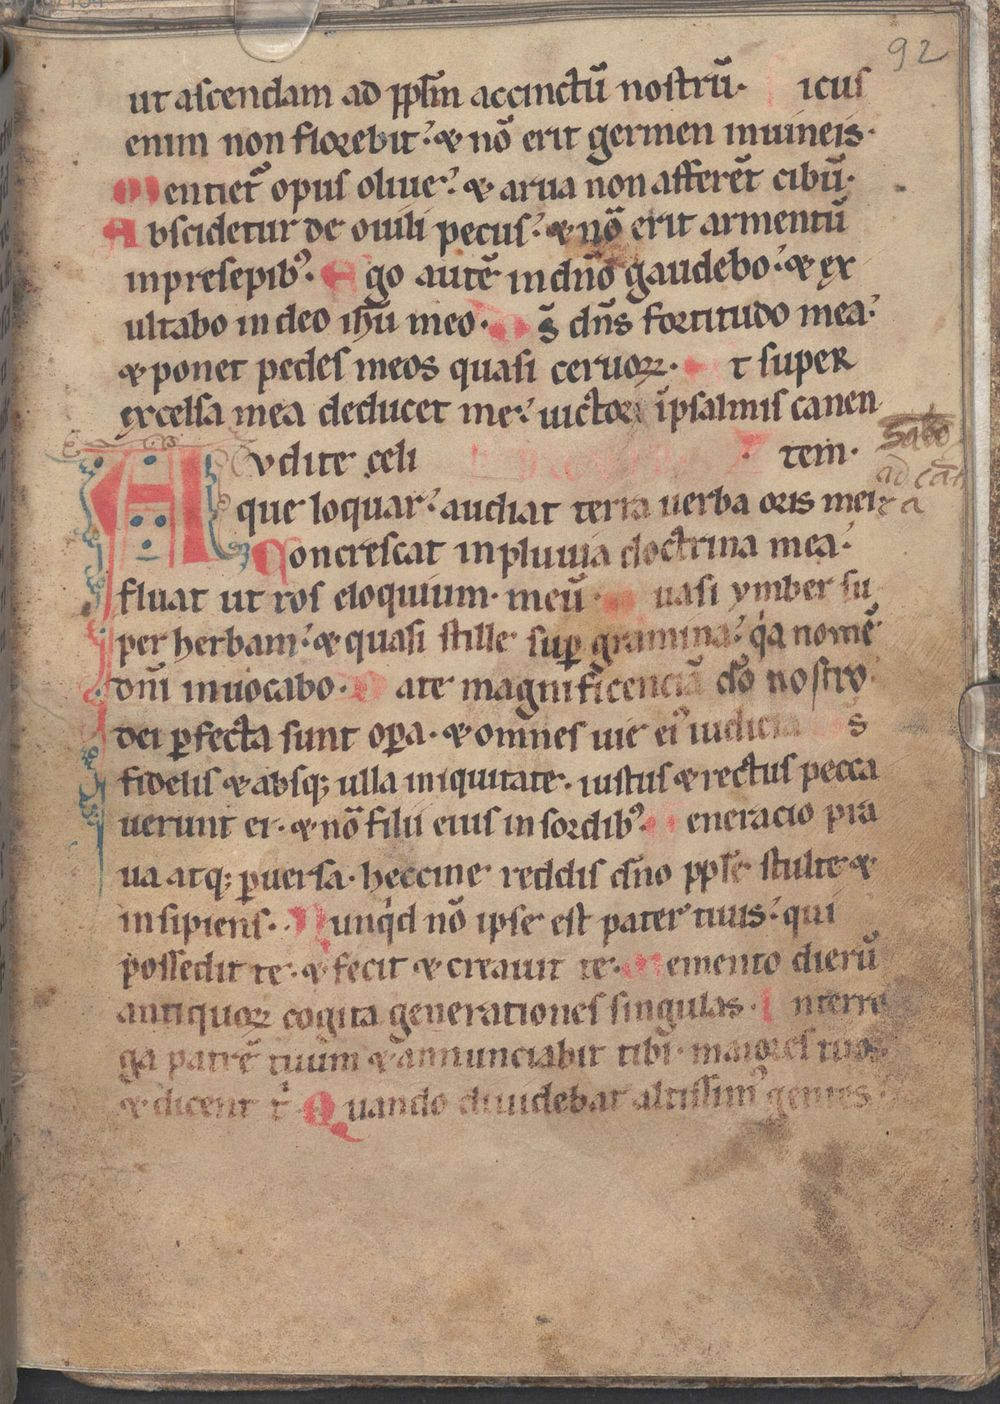 92
ut ascendam ad ppl̄m accinctū nostrū. icus
enim non florebit. & nō erit germen in uineis.
Mentiet᷑ opus oliue. & arua non afferēt cibū.
Abscidetur de ouili pecus. & nō erit armentū
in presepibꝰ. Ego autē in dn̄o gaudebo. & ex
ultabo in deo ih̄u meo. D s̄ dn̄s fortitudo mea.
& ponet pedes meos quasi ceruoꝝ. t super
excelsa mea deducet me. uictor ī psalmis canen
Audite celi tem.
que loquar. audiat terra uerba oris mei
Concrescat in pluuia doctrina mea.
fluat ut ros eloquium. meū uasi ymber su
per herbam. & quasi stille suꝑ gramina. qͥa nomē
dn̄i inuocabo. ate magnificenciā dō nostro
dei ꝑfecta sunt oꝑa. & omnes uie eiꝰ iudicia s
fidelis & absqꝫ ulla iniquitate. iustus & rectus pecca
uerunt ei. & nō filii eius in sordibꝰ. eneracio pra
ua atqꝫ ꝑuersa. heccine reddis dn̄o pple stulte &
insipiens. Nunqͥd nō ipse est pater tuus. qui
possedit te. & fecit & creauit te. Memento dierū
antiquoꝝ cogita generationes singulas. Interro
ga patrē tuum & annunciabit tibi. maiores tuos
& dicent tͥ Quando diuidebat altissimꝰ gentes.
Sabbō
ad cāt